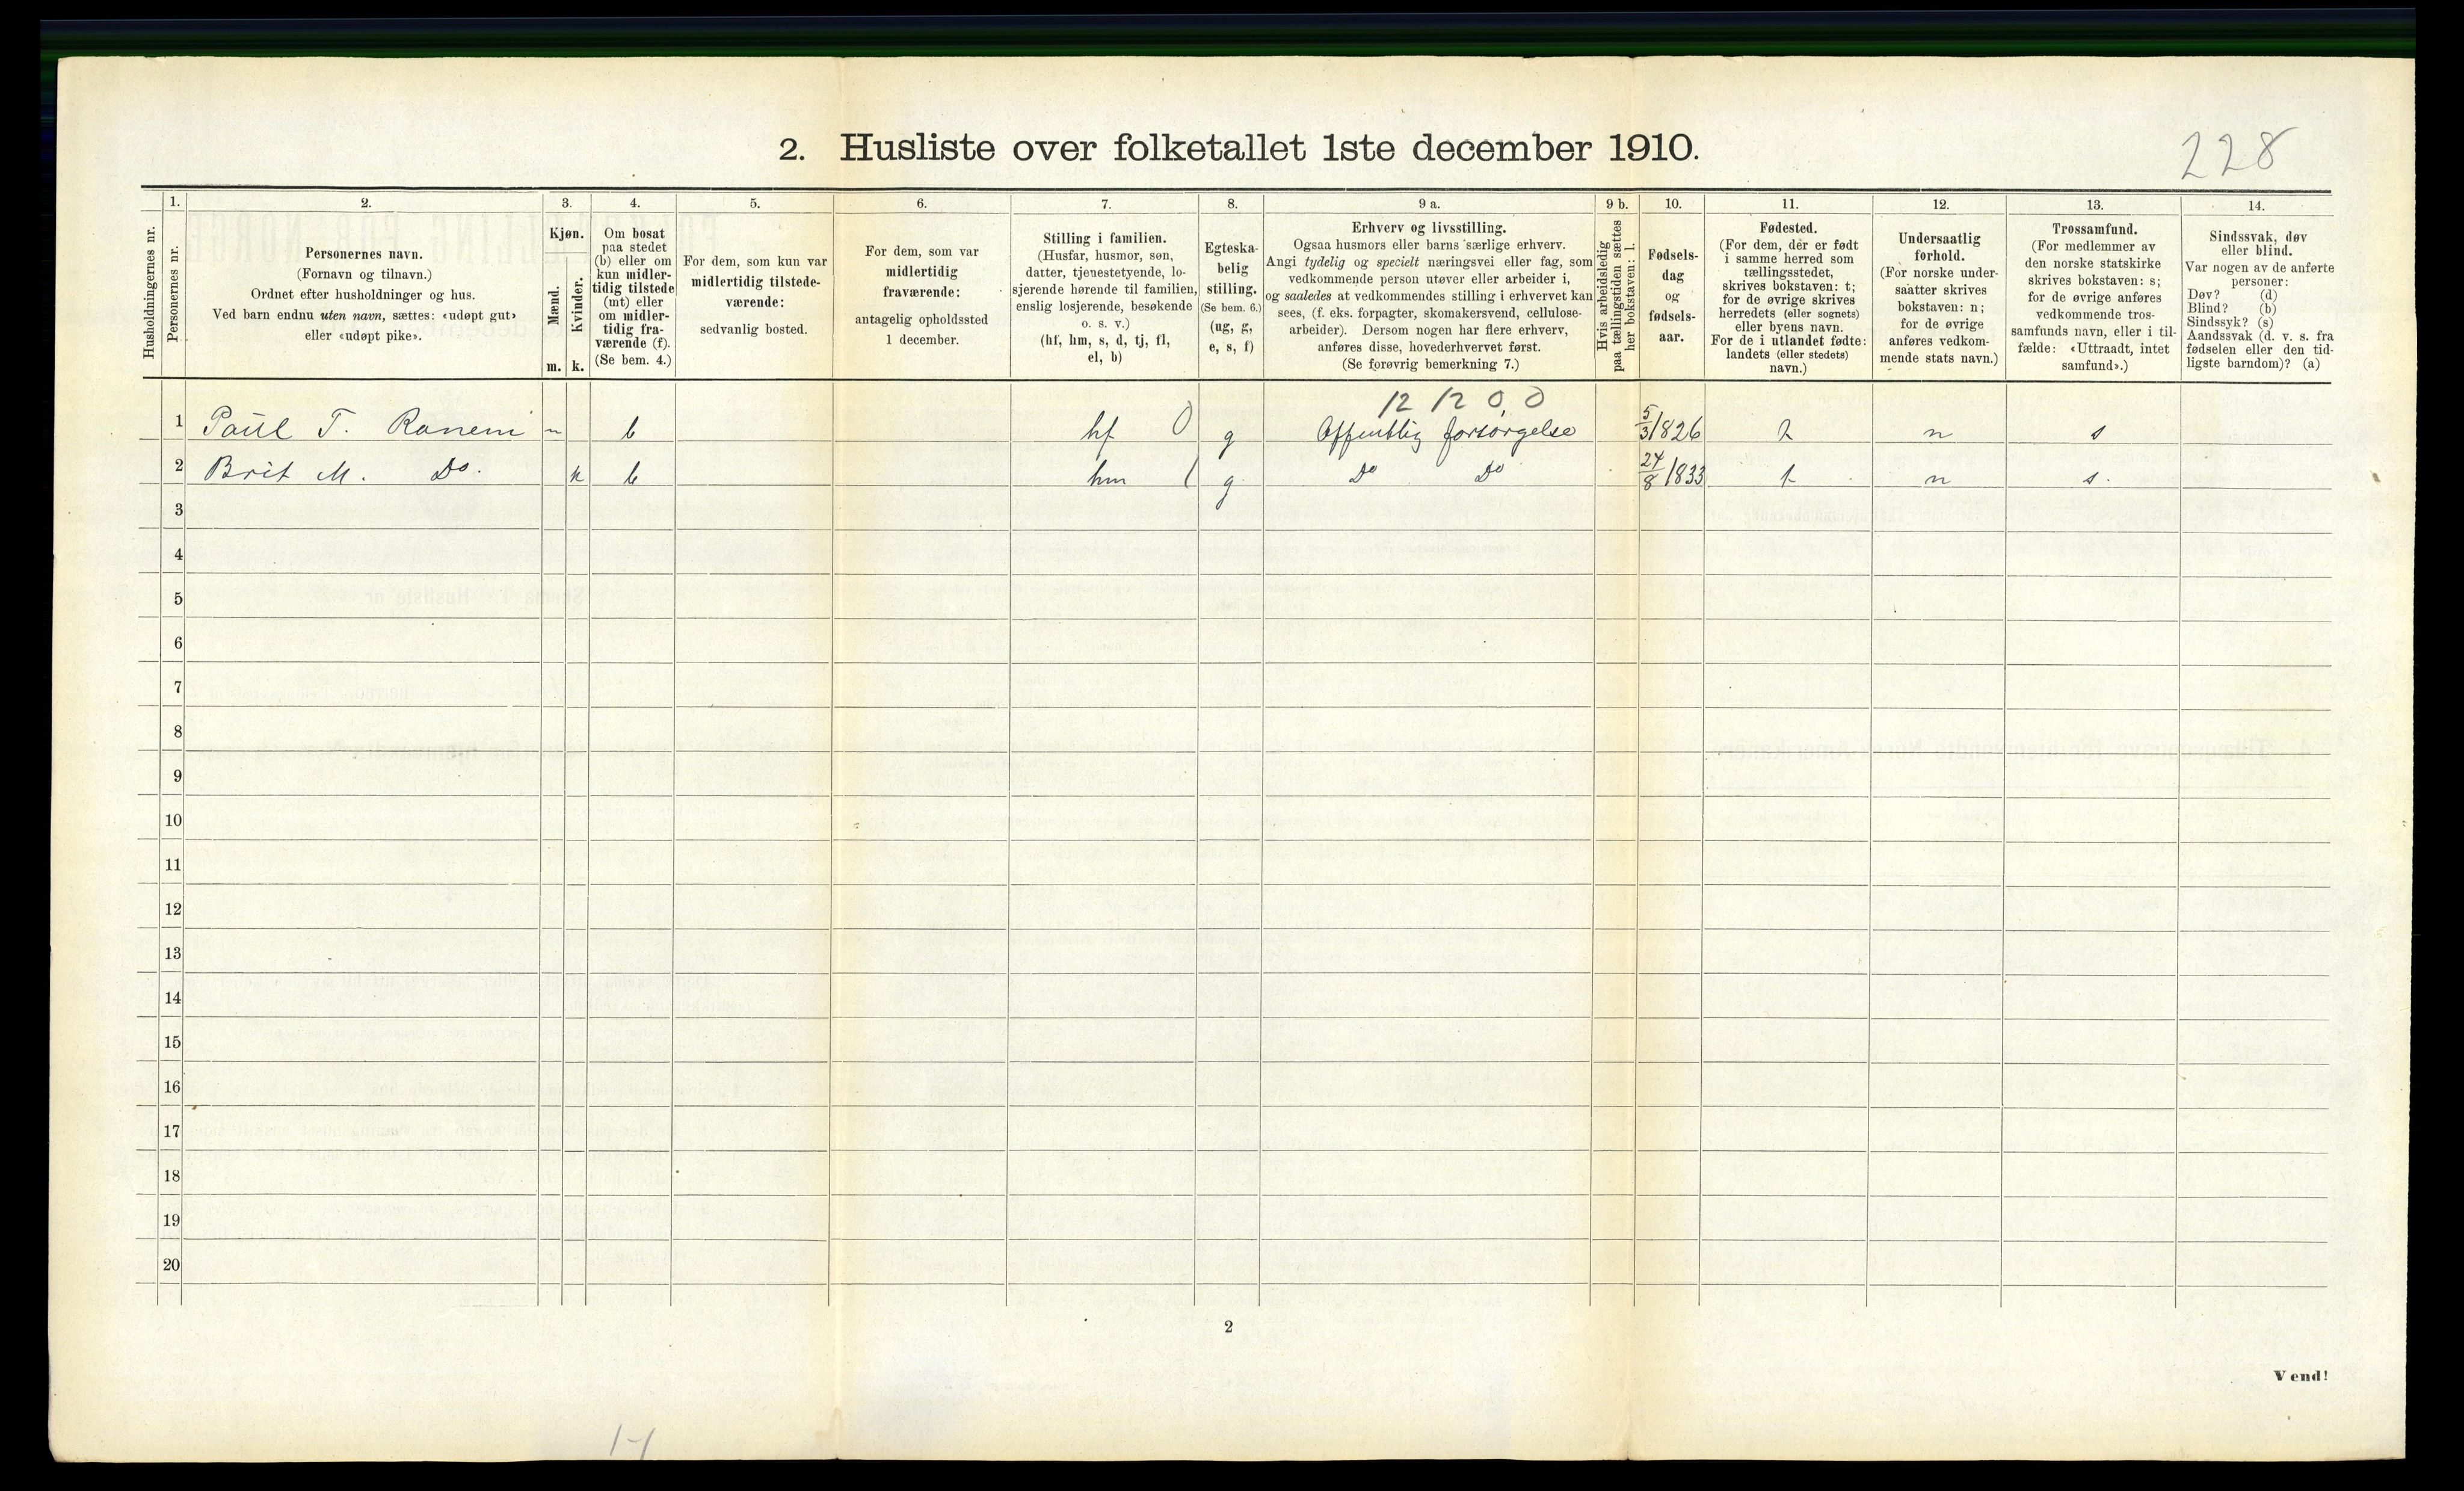 2. Husliste over folketallet 1ste december 1910.
228
Husholdningernes nr.
1.
Personernes nr.
2.
Personernes navn.
(Fornavn og tilnavn.)
Ordnet efter husholdninger og hus.
Ved barn endnu uten navn, sættes: «udøpt gut»
eller «udøpt pike».
3.
Kjøn.
Mænd.
Kvinder.
m. k.
4.
Om bosat
paa stedet
(b) eller om
kun midler-
tidig tilstede
(mt) eller
om midler-
tidig fra-
værende (f).
(Se bem. 4.)
5.
For dem, som kun var
midlertidig tilstede-
værende:
sedvanlig bosted.
6.
For dem, som var
midlertidig
fraværende:
antagelig opholdssted
1 december.
7.
Stilling i familien.
(Husfar, husmor, søn,
datter, tjenestetyende, lo-
sjerende hørende til familien,
enslig losjerende, besøkende
o. s. v.)
(hf, hm, s, d, tj, fl,
el, b)
8.
Egteska-
belig
stilling.
(Se bem. 6.)
(ug, g,
e, s, f)
9 a.
Erhverv og livsstilling.
Ogsaa husmors eller barns særlige erhverv.
Angi tydelig og specielt næringsvei eller fag, som
vedkommende person utøver eller arbeider i,
og saaledes at vedkommendes stilling i erhvervet kan
sees, (f. eks. forpagter, skomakersvend, cellulose-
arbeider). Dersom nogen har flere erhverv,
anføres disse, hovederhvervet først.
(Se forøvrig bemerkning 7.)
9 b.
Hvis arbeidsledig
paa tællingstiden sættes
her bokstaven: l.
10.
Fødsels-
dag
og
fødsels-
aar.
11.
Fødested.
(For dem, der er født
i samme herred som
tællingsstedet,
skrives bokstaven: t;
for de øvrige skrives
herredets (eller sognets)
eller byens navn.
For de i utlandet fødte:
landets (eller stedets)
navn.)
12.
Undersaatlig
forhold.
(For norske under-
saatter skrives
bokstaven: n;
for de øvrige
anføres vedkom-
mende stats navn.)
13.
Trossamfund.
(For medlemmer av
den norske statskirke
skrives bokstaven: s;
for de øvrige anføres
vedkommende tros-
samfunds navn, eller i til-
fælde: «Uttraadt, intet
samfund».)
14.
Sindssvak, døv
eller blind.
Var nogen av de anførte
personer:
Døv? (d)
Blind? (b)
Sindssyk? (s)
Aandssvak (d. v. s. fra
fødselen eller den tid-
ligste barndom)? (a)
12 12 0, 0
1 Paul T. Raneni m b hf 0 g Offentlig forsørgelse 5/3 1826 t n s
2 Brit M. Do. k b hm g Do Do 24/8 1833 t n s.
3
4
5
6
7
8
9
10
11
12
13
14
15
16
17
18
19
20
2
Vend!